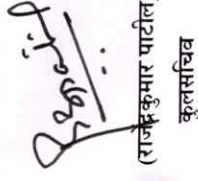 (राजेंद्रकुमार पाटील)
कुलसचिव